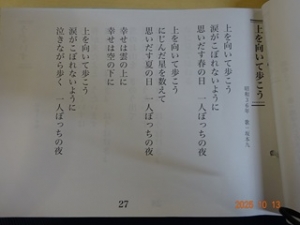 上を向いて歩こう
昭和36年 歌 坂本九
上を向いて歩こう
涙がこぼれないように
思いだす春の日 一人ぼっちの夜
上を向いて歩こう
にじんだ星を数えて
思いだす夏の日 一人ぼっちの夜
幸せは雲の上に
幸せは空の下に
上を向いて歩こう
涙がこぼれないように
泣きながら歩く 一人ぼっちの夜
27
2025 10 13